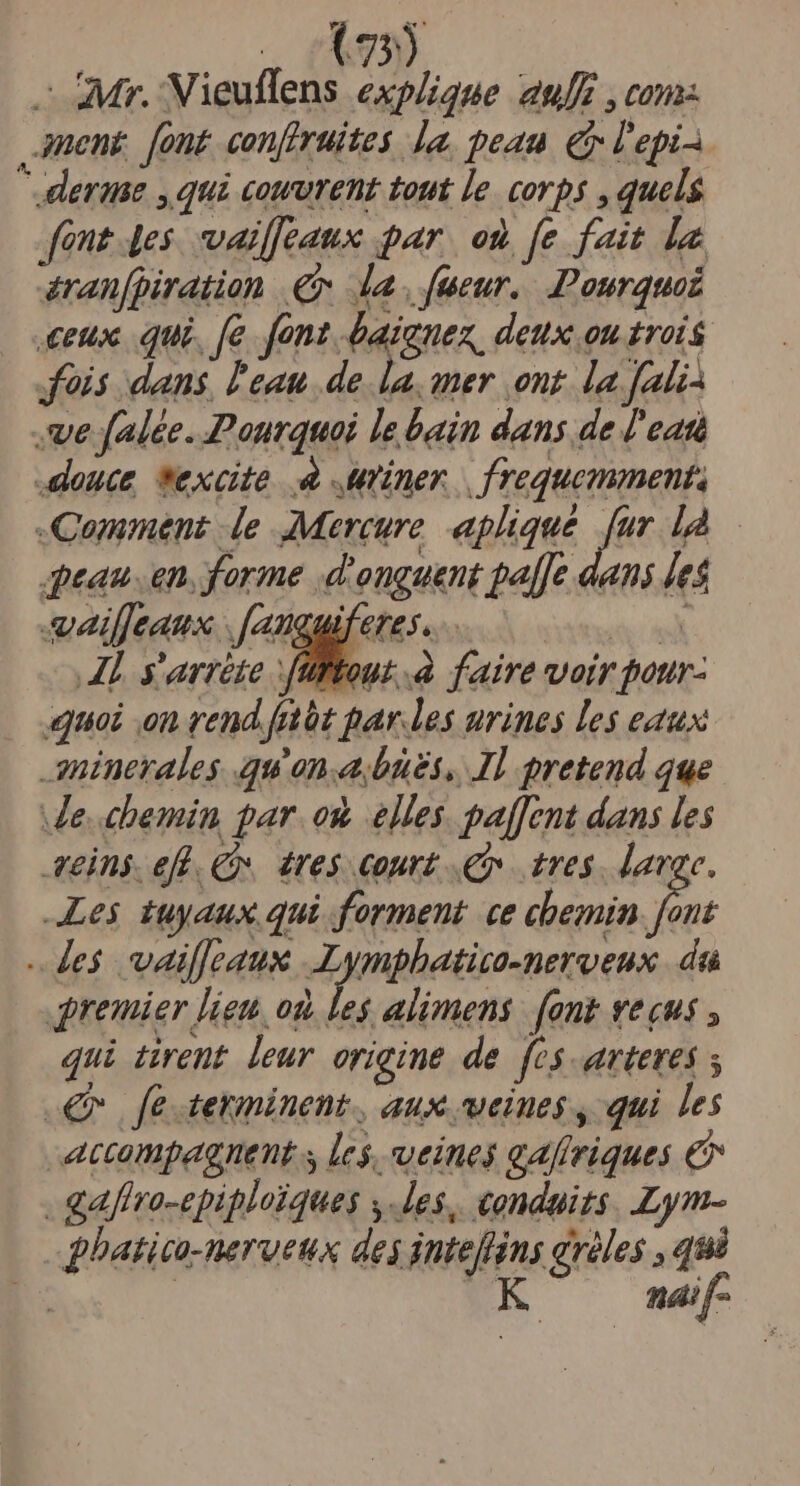 (73)
Mr. Vieuſſens explique auſſi, com-
ment ſont conſtruites la peau & l'epi-
derme, qui couvrent tout le corps, quels
ſont les vaiſſeaux par où ſe fait la
tranſpiration & la ſueur. Pourquoi
ceux qui ſe ſont baignez deux ou trois
fois dans l'eau de la mer ont la ſali-
ve ſalée. Pourquoi le bain dans de l'eau
douce excite à uriner frequemment.
Comment le Mercure apliqué ſur la
peau en forme d'onguent paſſe dans les
vaiſſeaux ſanguiferes.
Il s'arrête ſurtout à faire voir pour-
quoi on rend ſitôt par les urines les eaux
minerales qu'on a bûës. Il pretend que
le chemin par où elles paſſent dans les
reins eſt & tres court & tres large.
Les tuyaux qui forment ce chemin ſont
les vaiſſeaux Lymphatico-nerveux du
premier lieu où les alimens ſont reçus,
qui tirent leur origine de ſes arteres;
& ſe terminent aux veines, qui les
accompagnent; les veines gaſtriques &
gaſtro-epiploïques; les conduits Lym-
phatico-nerveux des inteſtins grêles, qui
K naiſ-